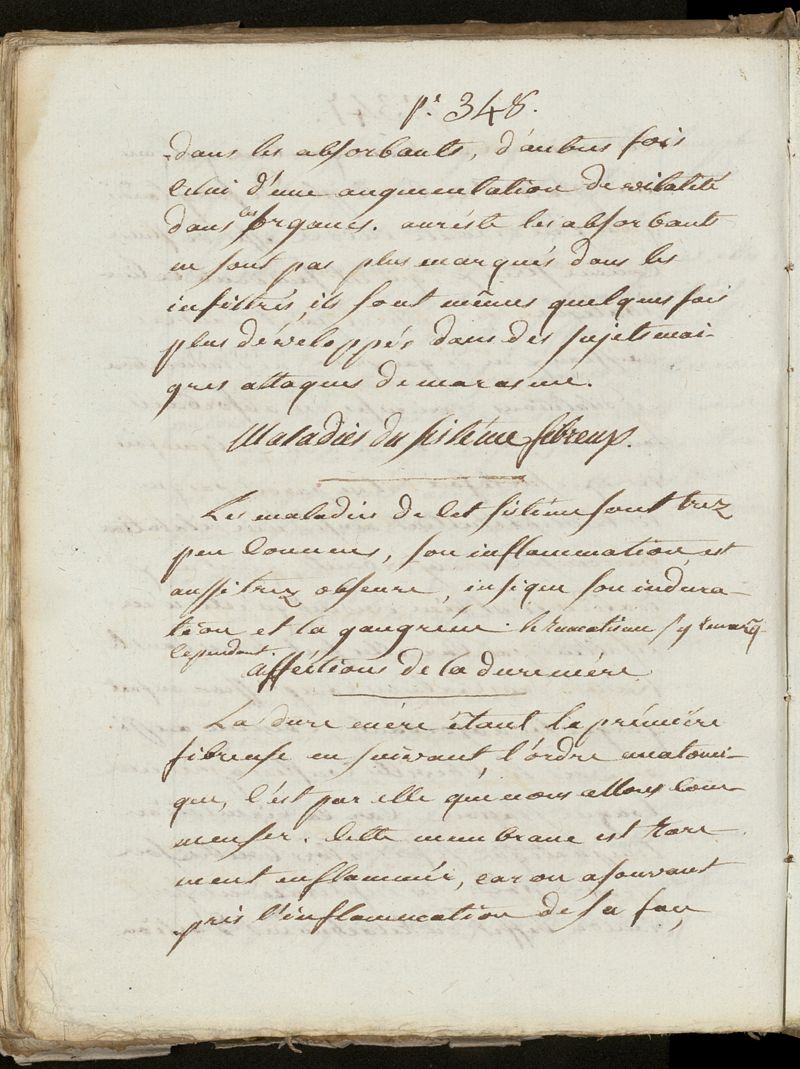 pe. 348.
dans les absorbants, d'autres fois
celui d'une augmentation de vitalité
dans ces organes. aureste les absorbants
ne sont pas plus marqués dans les
infiltrés, ils sont mêmes quelques fois
plus développés dans des sujets mai-
gres attaques de marasme.
Maladies du sistême fibreux.
Les maladies de cet sistême sont trez
peu connues, son inflammation est
aussi trez obscure, insi que son indura-
tion et la gangréne. le rumatisme s'y remarq
cependant.
afféctions de la duremére
La dure mére êtant la prémiére
fibreuse en suivant l'ordre anatomi-
que, c'est par elle que nous allons com-
menser. cette membrane est rare
ment enflammée, car on a souvant
pris l'inflammation de sa face